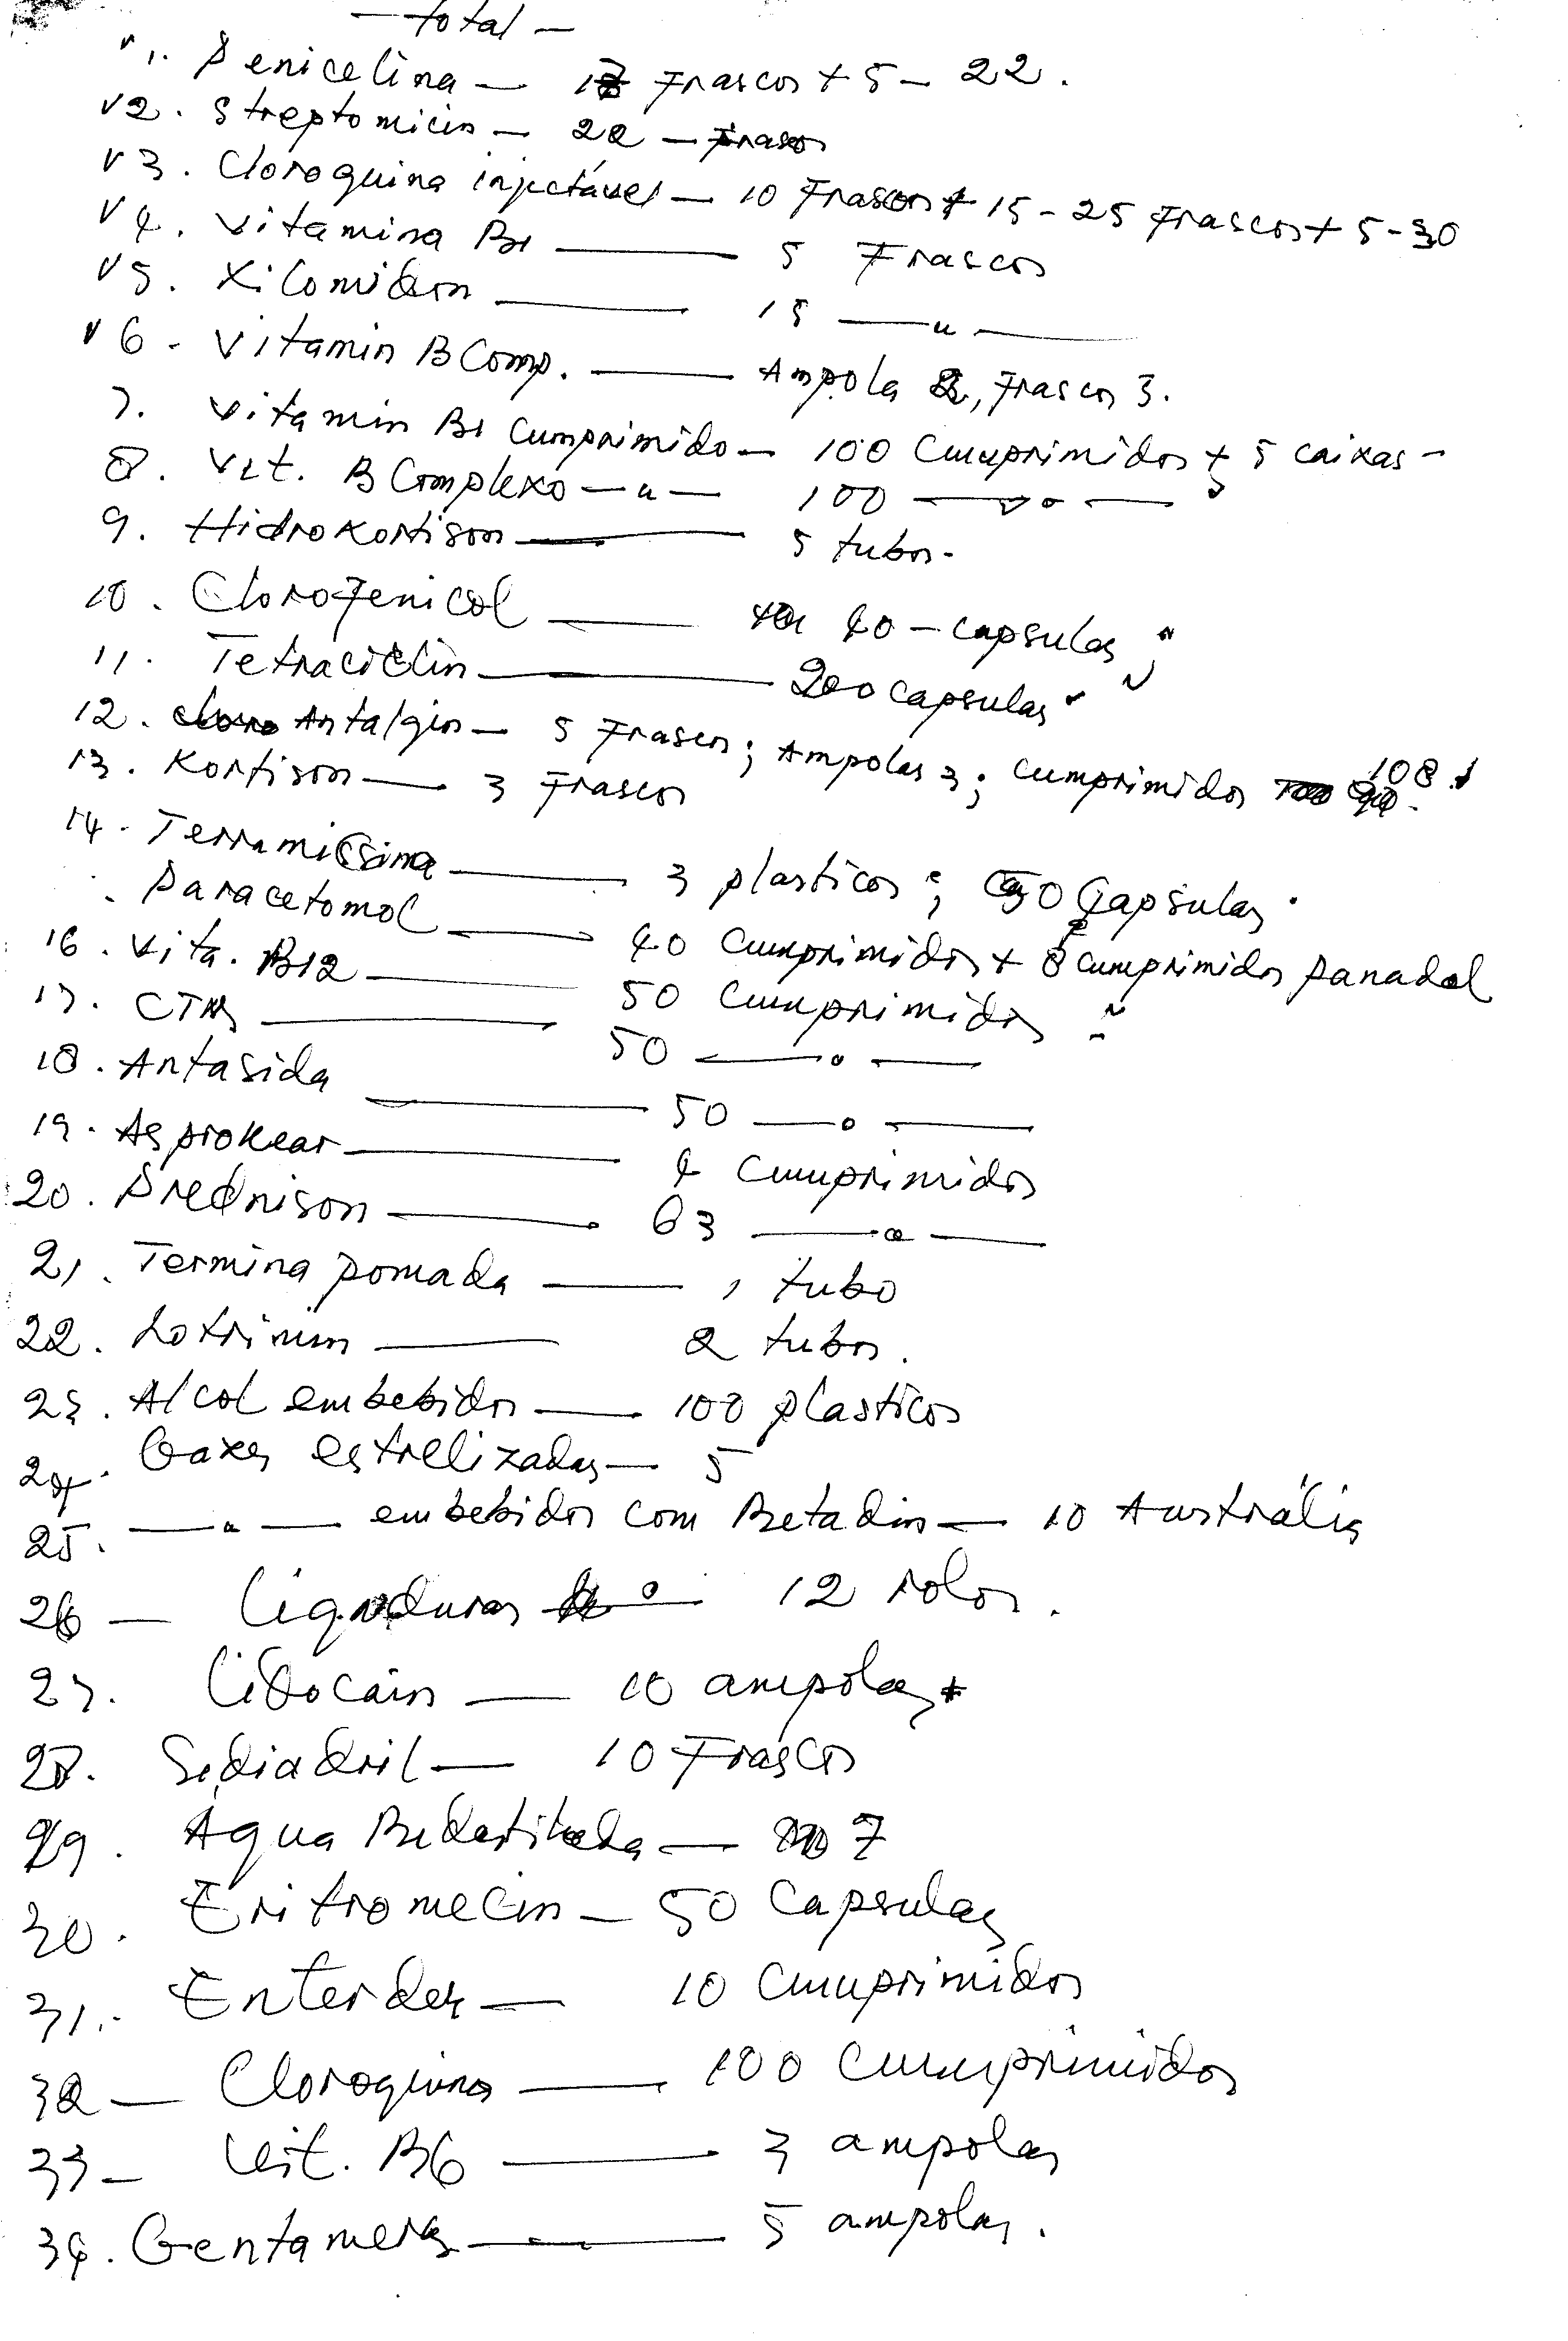 — total —
v 1. Penicelina — 17 Frascos + 5 — 22.
v 2. Streptomicin — 22 — Frasco
v 3. Cloroquina injectável — 10 Frascos + 15 - 25 Frascos + 5 - 30
v 4. Vitamina B1 — 5 Frascos
v 5. Xilomidon — 15 — " —
v 6. Vitamin B Comp. — Ampola 2, Frascos 3.
7. Vitamin B1 Cumprimido — 100 Cumprimidos + 5 caixas -
8. Vit. B Complexo — " — 100 — " —
9. Hidrokortison — 5 tubos.
10. Clorofenicol — 40 - capsulas
11. Tetraciclin — 200 capsulas
12. Antalgin — 5 Frascos; Ampolas 3; Cumprimidos 108.
13. Kortison — 3 Frascos
14. Terramissina — 3 plasticos; 50 Capsulas.
. Paracetomol — 40 Cumprimidos + 8 cumprimidos Panadol
16. Vita. B12 — 50 Cumprimidos
17. CTM — 50 — " —
18. Antasida — 50 — " —
19. Asprokear — 4 Cumprimidos
20. Prednison — 63 — " —
21. Termina pomada — 1 tubo
22. Lotrimin — 2 tubos.
23. Alcol embebidos — 100 plasticos
24. Gaxes estrelizadas — 5
25. — " — embebidos com Betadin — 10 Austrália
26 — Ligaduras — 12 rolos.
27. Lidocain — 10 ampolas
28. Sediadril — 10 Frascos
29. Água Bidestilada — 7
30. Eritromecin — 50 Capsulas
31. — 10 Cumprimidos
32 — Cloroquina — 100 Cumprimidos
33 — Vit. B6 — 3 ampolas
34. — 5 ampolas.